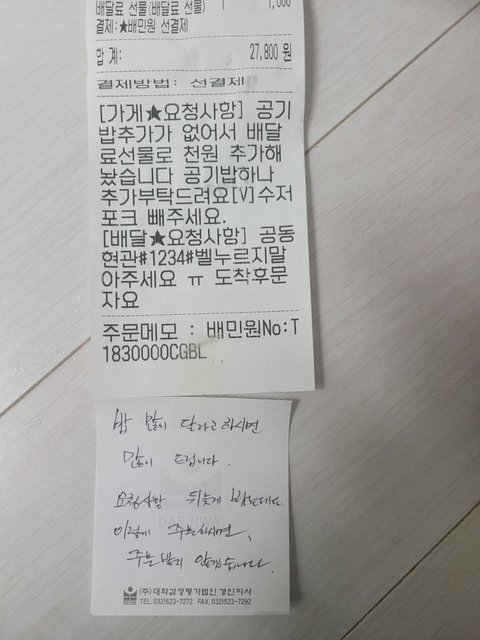 배달료 선물(배달료 선물) 1 1,000
결제:★배민원 선결제
합 계: 27,800 원
결제방법: 선결제
[가게★요청사항] 공기
밥추가가 없어서 배달
료선물로 천원 추가해
놨습니다 공기밥하나
추가부탁드려요[V]수저
포크 빼주세요.
[배달★요청사항] 공동
현관#1234#벨누르지말
아주세요 ㅠ 도착후문
자요
주문메모 : 배민원No:T
1830000CGBL
밥 많이 달라고 하시면
많이 드립니다.
요청사항 뒤늦게 봤는데요.
이렇게 주문하시면,
주문 받지 않겠습니다.
(주)대화감정평가법인 경인지사
TEL. 032)523-7272 FAX. 032)523-7292